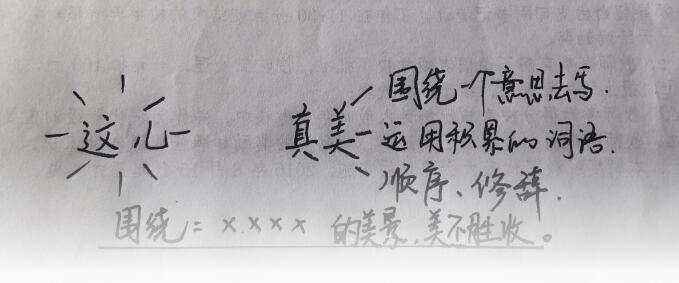 围绕一个意思去写.
这儿 真美 运用积累的词语.
顺序、修辞.
围绕：××××的美景，美不胜收。